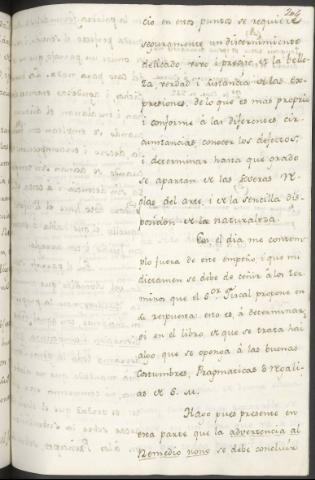 cio en estos puntos se requiere
seguramente un discernimiento
delicado, vivo i preciso, de la belle-
za, verdad i sustancia de las ex-
presiones, de lo que es mas propio
i conforme à las diferentes cir-
cunstancias, conocer los defectos;
i determinar hasta que grado
se apartan de las severas re-
glas del arte, i de la sencilla dis-
posicion de la naturaleza.
En el dia me contem-
plo fuera de este empeño, i que mi
dictamen se debe de ceñir à los ter-
minos que el S.or Fiscal propone en
su respuesta: esto es, à determinar
si en el libro, de que se trata hai
algo que se oponga à las buenas
costumbres, Pragmaticas ò regali-
as de S. M.
Hago pues presente en
esta parte que la advertencia al
Remedio nono se debe concluir